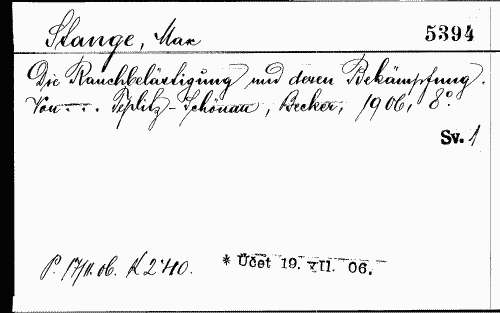 Stange, Max 5394
Die Rauchbelästigung und deren Bekämpfung.
Von --- . Teplitz-Schönau, Becker, 1906, 8°.
Sv. 1
P. 17/11. 06. K 2·40. * Účet 19. XII. 06.